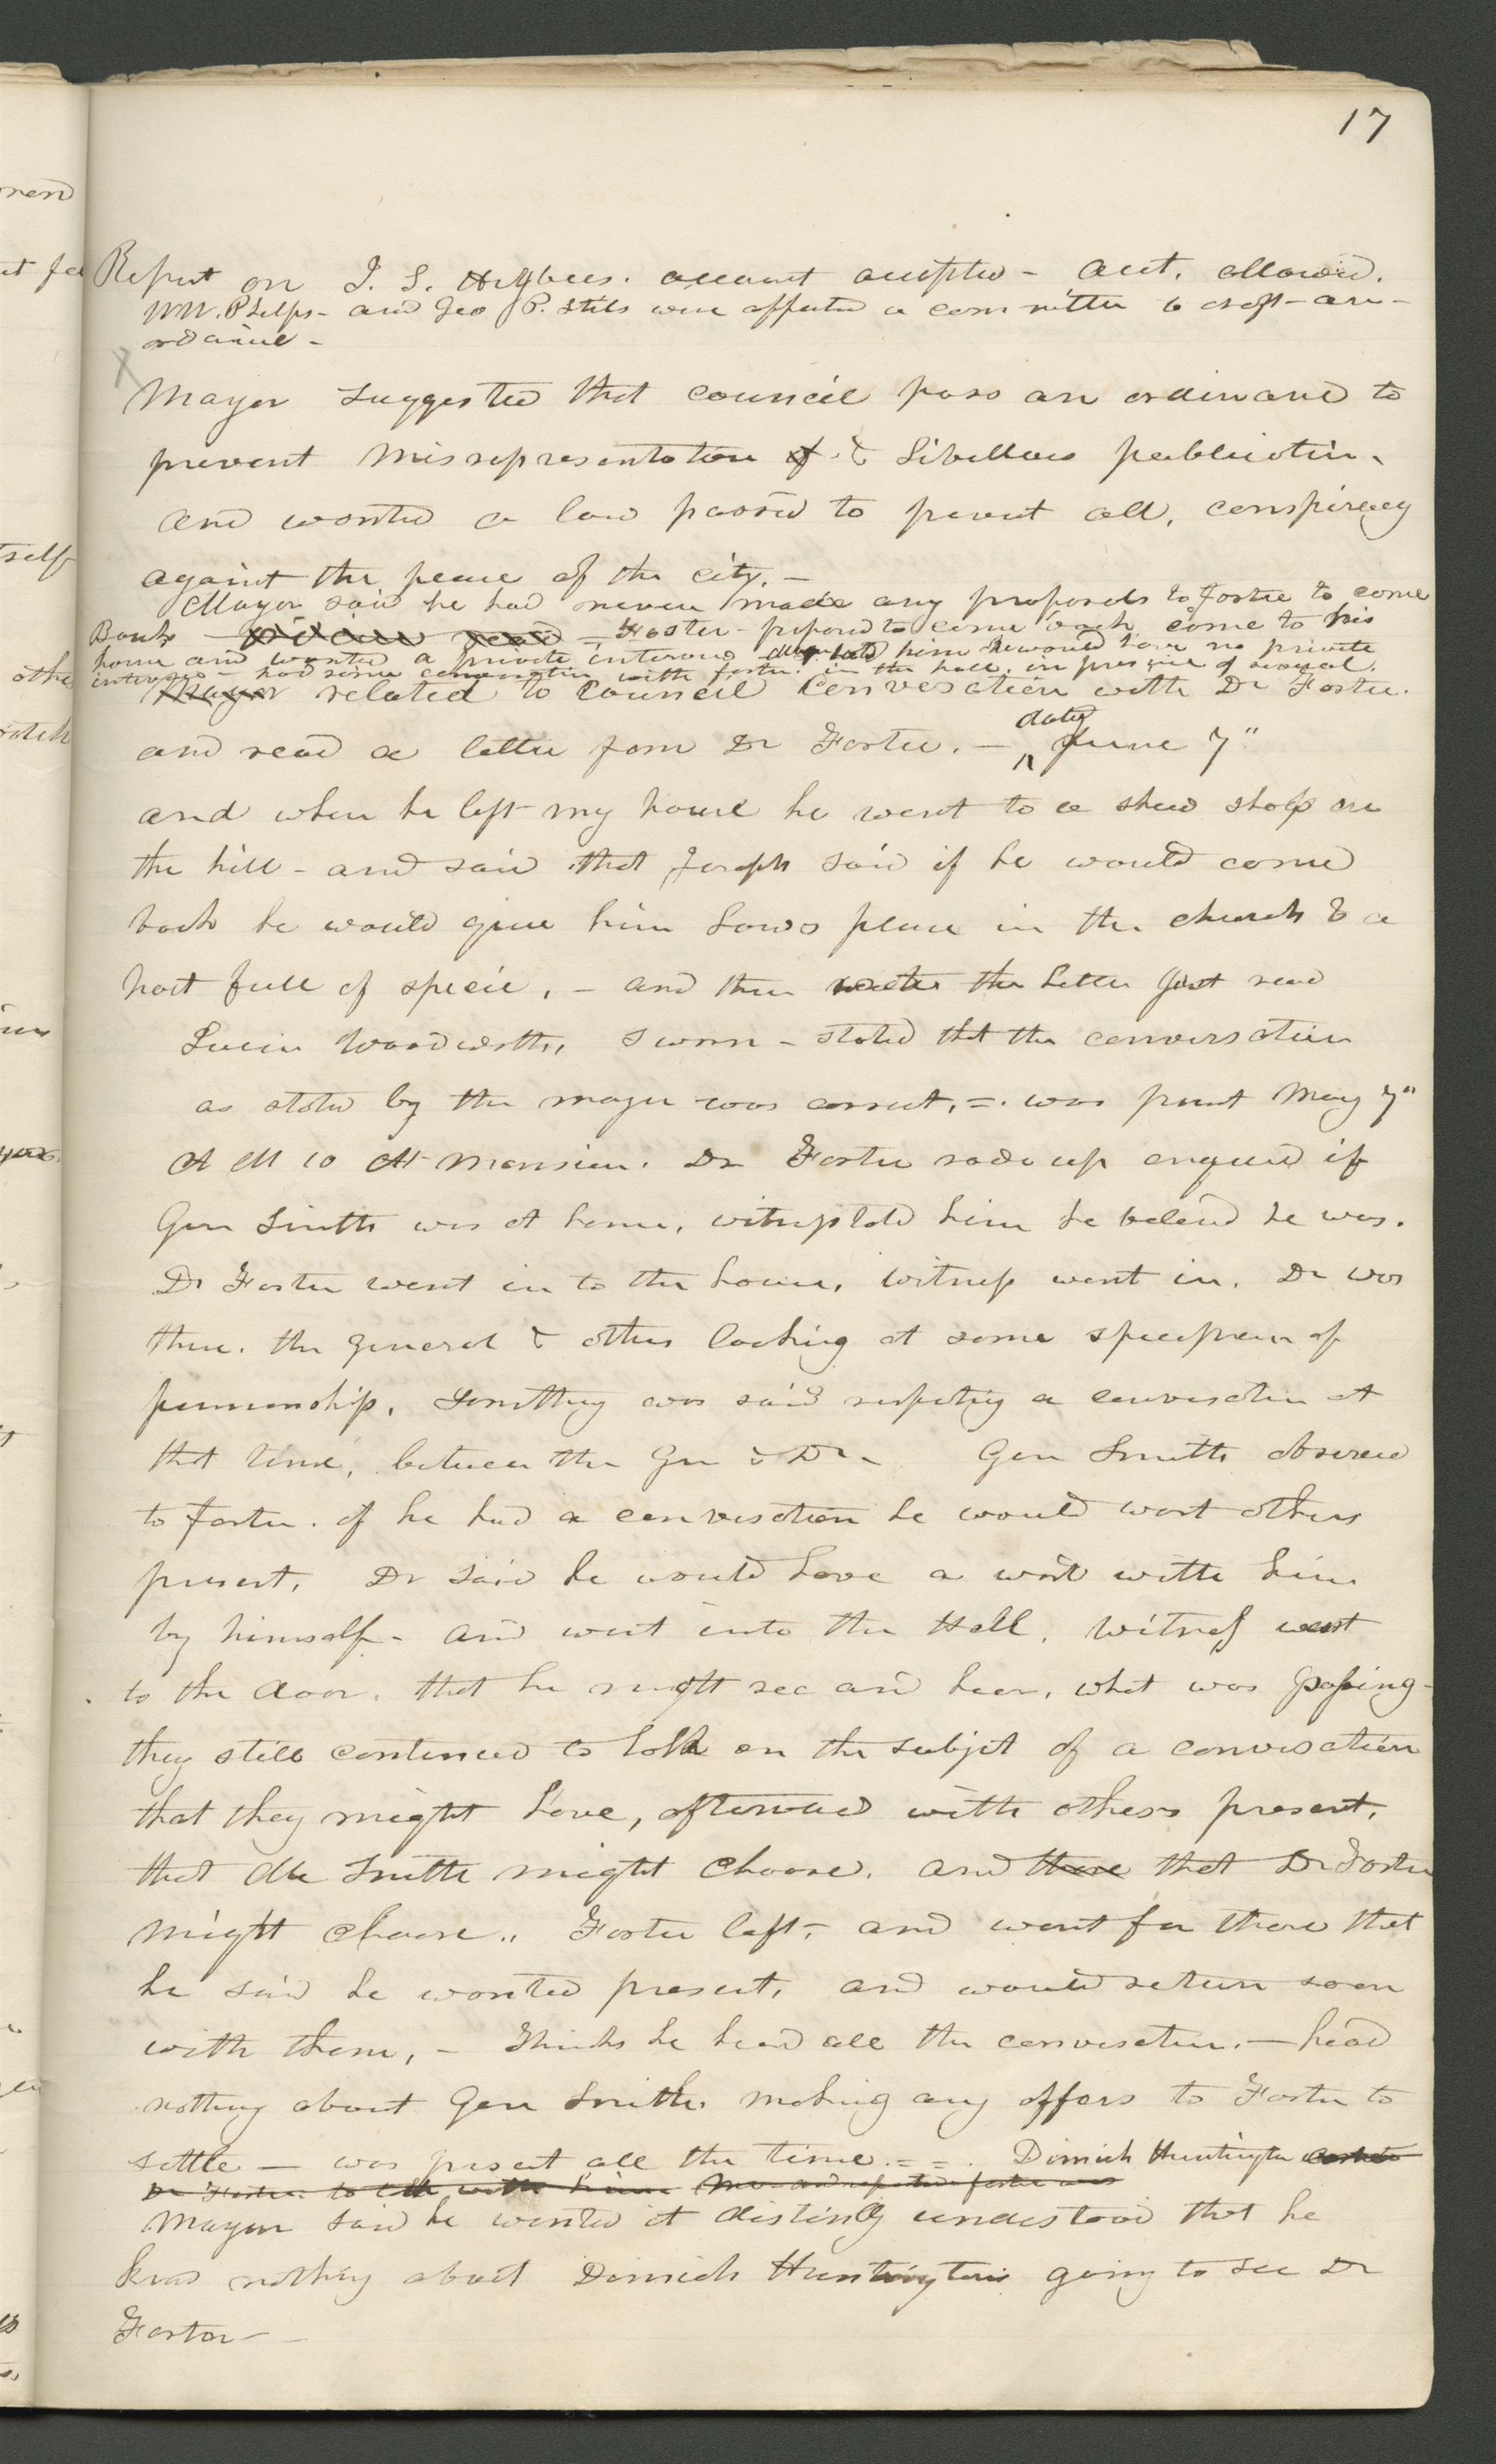 17
Report on I. S. Higbees. account accepted - acct. allowed.
W W. Phelps - and Geo P. Stiles were appointed a committee to draft - an -
ordinance -
Mayor suggested that council pass an ordinance to
prevent misrepresentation of & Libellous publication.
and wanted a law passed to prevent all, conspiracy
against the peace of the city. -
Mayor said he had never made any proposals to Foster to come
Back - = Foster - proposed to come back come to his
home and wanted a private interview - Mayor told him he would have no private
interview - had some conversation with foster. in the hall. in presence of several.
Mayor related to Council Conversation with Dr Foster.
dated
and read a letter from Dr Foster. - ^ June 7"
and when he left my house he went to a shoe shop on
the hill - and said that Joseph said if he would come
back he would give him Laws place in the church & a
hat full of specie, - and then wrote the Letter just read
Lucien Woodworth, Sworn - stated that the conversation
as stated by the mayor was correct. =. was present May 7"
A M 10 At Mansion. Dr Foster rode up enquired if
Gen Smith was at home, witness told him he believd he was.
Dr Foster went in to the house, witness went in. Dr was
there. the general & others looking at some specimen of
penmanship. Something was said respecting a conversation at
that time, between the Gen & Dr - Gen Smith observed
to Foster. if he had a conversation he would want others
present, Dr said he would have a word with him
by himself - and went into the Hall. Witness went
to the door. that he might see and hear, what was passing -
they still continued to talk on the subject of a conversation
that they might have, afterward with others present.
that Mr Smith might choose. and those that Dr Foster
might choose.. Foster left, - and went for those that
he said he wanted present, and would return soon
with them, - Thinks he heard all the conversation. - heard
nothing about Gen Smith. making any offers to Foster to
settle - was present all the time. = =. Dimick Huntington wanted
Dr Foster. to talk with him
Mayor said he wanted it distinctly understood that he
knew nothing about Dimick Huntingtons going to see Dr
Foster -